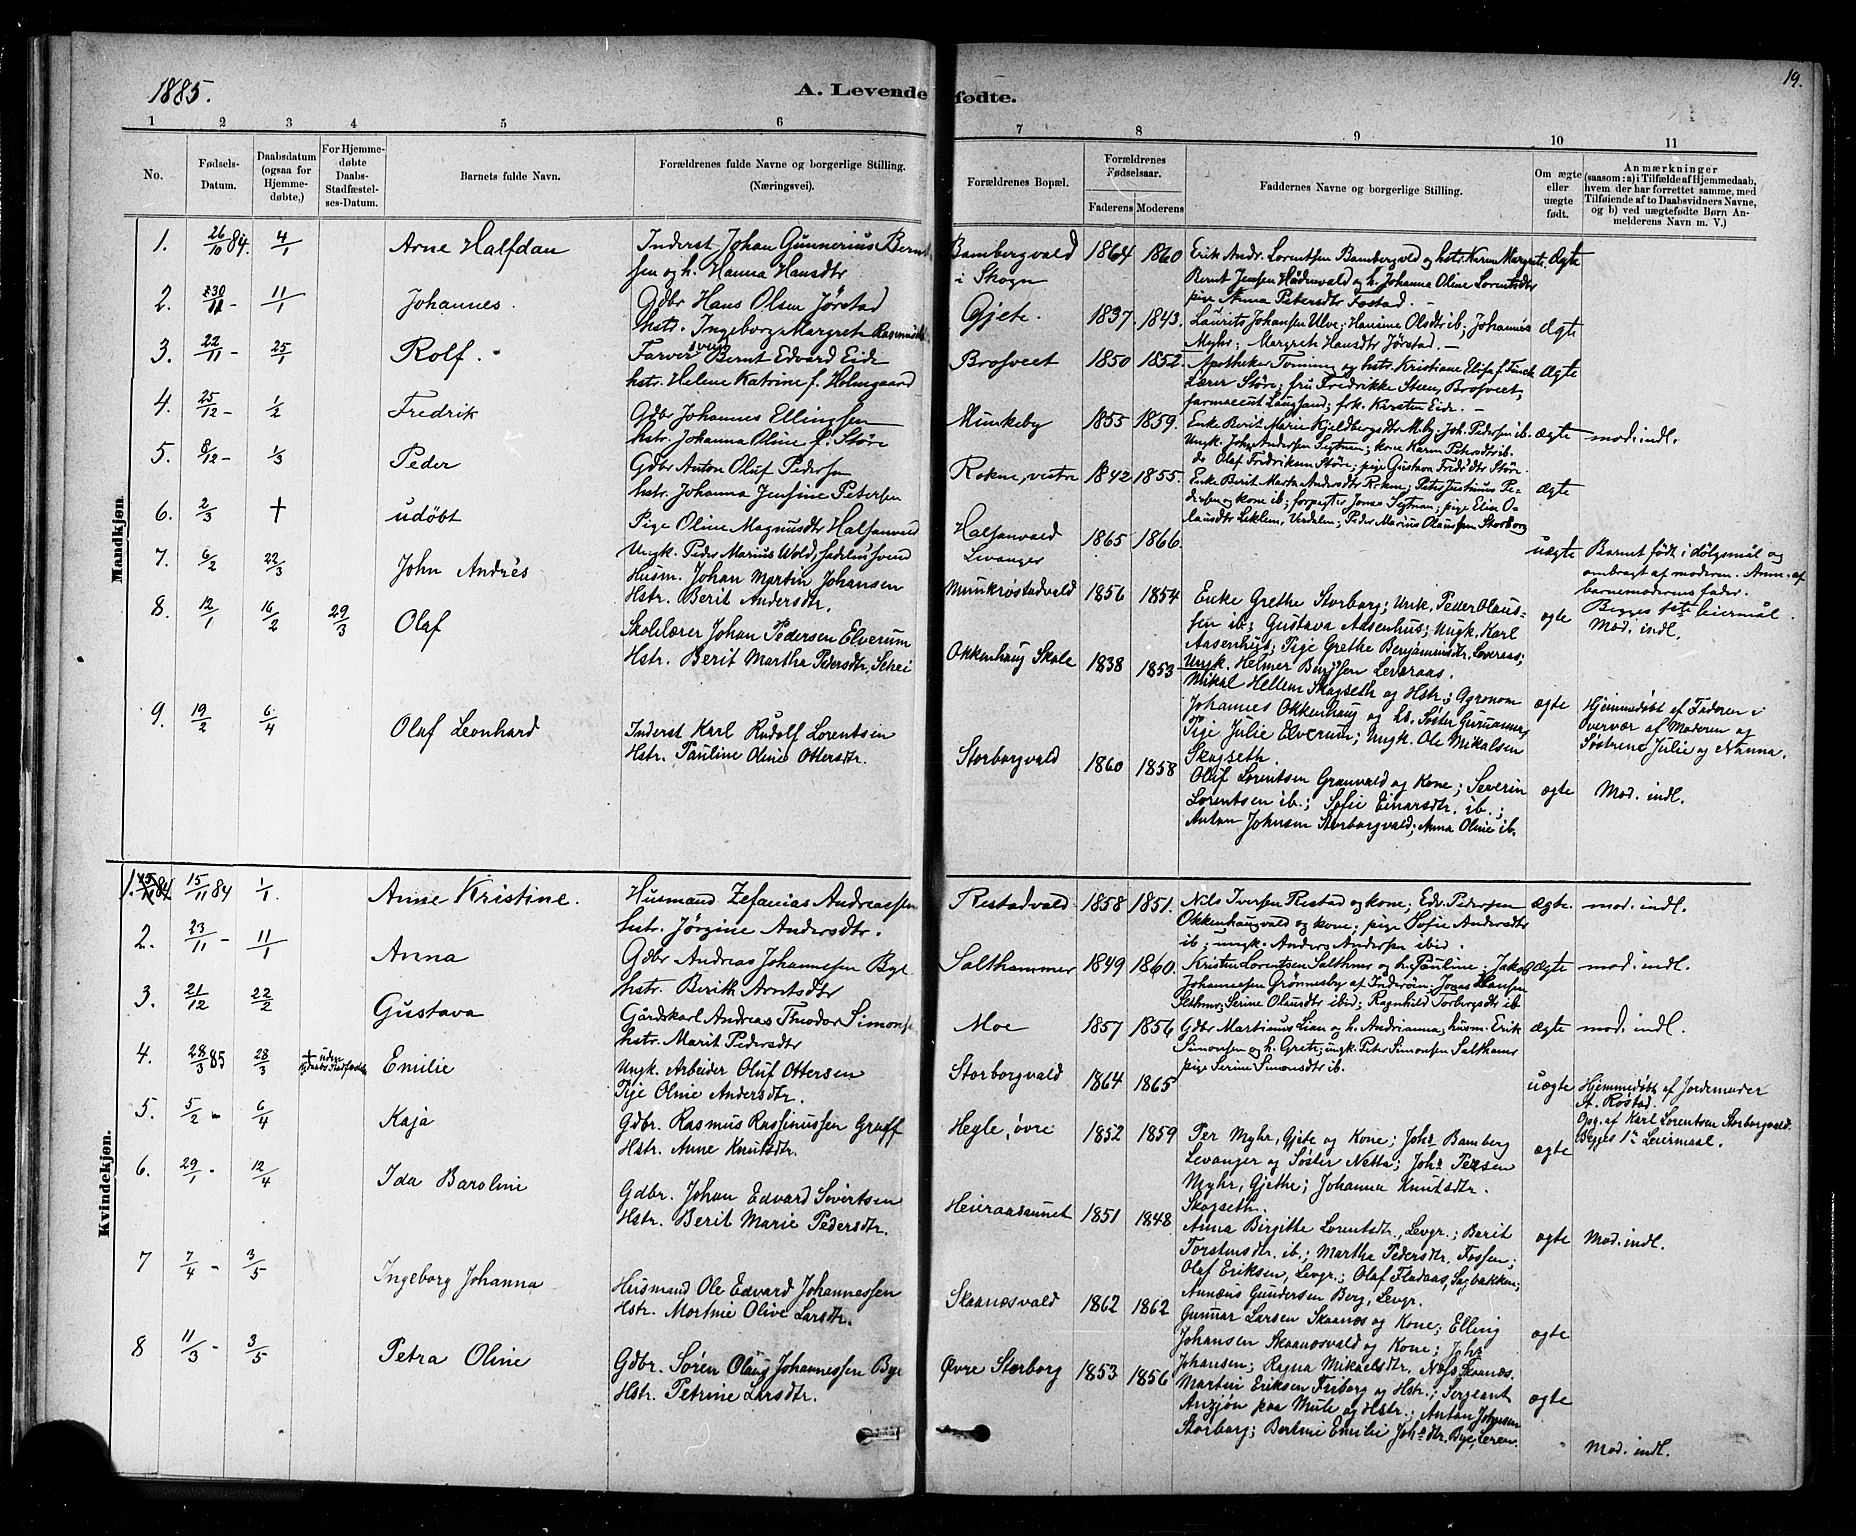 1885.
A. Levende fødte.
19.
1 2 3 4 5 6 7 8 9 10 11
No.
Fødsels-
Datum.
Daabsdatum
(ogsaa for
Hjemme-
døbte,)
For Hjemme-
døbte
Daabs-
Stadfæstel-
ses-Datum.
Barnets fulde Navn.
Forældrenes fulde Navne og borgerlige Stilling.
(Næringsvei).
Forældrenes Bopæl.
Forældrenes
Fødselsaar.
Faderens Moderens
Faddernes Navne og borgerlige Stilling.
Om ægte
eller
uægte
født.
Anmærkninger
(saasom: a) i Tilfælde af Hjemmedaab,
hvem der har forrettet samme, med
Tilføiende af to Daabsvidners Navne,
og b) ved uægtefødte Børn An-
melderens Navn m. V.)
Mandkjøn.
1. 26/10 84. 4/1 Arne Halfdan
Inderst Johan Gunnerius Bernt
sen og h. Hanna Hansdtr
Bambergvald
i Skogn
1864 1860
Erik Andr. Lorentsen Bambergvld og hstr. Karen Margrete.
Bernt Jensen Hådenvald og h. Johanna Oline Lorentsdtr
pige Anna Petersdtr Fostad. —
Ægte
2. 30/11 - 11/1 Johannes.
Gdbr Hans Olsen Jørstad
hstr. Ingeborg Margrete
Gjete. 1837 1843.
Laurits Johansen Ulve; Hansine Olsdtr ib; Johannes
Myhr; Margrete Hansdtr Jørstad. —
Ægte
3. 22/11 - 25/1 Rolf.
Farversvend Bernt Edvard Eide
hstr. Helene Katrine f. Holmgaard
Brofveet 1850 1852.
Apotheker Tonning og hstr. Kristiane Elise f. Finck
Lærer Støre; fru Fredrikke Steen, Brofveet,
farmaceut Laugsand; frk. Karsten Eide. —
Ægte
4. 25/12 - 1/2 Fredrik
Gdbr Johannes Ellingsen
hstr. Johanna Oline f. Støre
Munkeby 1855 1859.
Enke Berit Marie Kjeldbergsdtr M.by; Joh. Pedersen ib.
Ungk. Johs Andersen Segtnan; kone Karen Petersdtr ib.
do Olaf Fredriksen Støre; pige Gustava Fredsdtr Støre.
ægte mod. indl.
5. 8/12 - 1/3 Peder
Gdbr Anton Oluf Pedersen
hstr. Johanna Jensine Petersen
Rokne, vestre 1842 1855.
Enke Berit Marta Andersdtr Rokne; Peter Justinus Pe-
dersen og kone ib; forpagter Jonas Segtnan; pige Elen O-
lausdtr Leklem, Verdalen; Peder Marius Olaussen Storborg
ægte
6. 2/3 + udøbt
Pige Oline Magnusdtr Halsanvald
Ungk. Peder Marius Wold, sadelmsvend
Halsanvald
Levanger
1865 1866.
uægte
Barnet født i dølgsmål og
ombragt af moderen. Anm. af
barnemoderens fader.
Begges 1ste leiermål.
7. 6/2 22/3 John Andrés
Husm. Johan Martin Johansen
Hstr. Berit Andersdtr.
Munkrøstadvald 1856 1854
Enke Grethe Storborg; Unk. Peder Olaus-
sen ib; Gustava Aasenhus; Ungk. Karl
Aasenhus; Pige Grethe Benjaminsdtr. Leveraas;
Ungk. Helmer Benjsen Leveraas.
ægte Mod. indl.
8. 12/1 16/2 29/3 Olaf
Skolelærer Johan Pedersen Elverum
Hstr. Berit Martha Pedersdtr. Schei
Okkenhaug Skole 1838 1853
Mikal Hellem Skogseth og Hstr; Agronom
Johannes Okkenhaug og hs. Søster
Pige Julie Elverum; Ungk. Ole Mikalsen
Skogseth.
ægte
Hjemmedøbt af Faderen i
Overvær af Moderen og
Søstrene Julie og Nanna.
9. 19/2 6/4 Olaf Leonhard
Inderst Karl Rudolf Lorentsen
Hstr. Pauline Oline Ottersdtr.
Storborgvald 1860 1858
Oluf Lorentsen Granvald og Kone; Severin
Lorentsen ib.; Sofie Einarsdtr. ib.;
Anton Johnsen Storborgvald; Anna Oline ib.
ægte Mod. indl.
Kvindekjøn.
1. 15/11 84 1/1 Anne Kristine.
Husmand Zefanias Andreassen
hstr. Jørgine Andersdtr.
Restadvald 1858 1851.
Nils Iversen Restad og kone; Edv. Pedersen
Okkenhaugvald og kone; pige Sofie Andersdtr
ib; ungk. Anders Andersen ibid.
ægte. mod. indl.
2. 23/11 - 11/1 Anna
Gdbr Andreas Johannesen Bye
hstr. Berith Arntsdtr
Salthammer 1849 1860.
Kristen Lorentsen Salthmr og h. Pauline; Jakob
Johannesen Grønnesby af Inderøen; Jonas Hansen
Slthmr; Serine Olausdtr ibid; Ragnhild Torbergsdtr ib
ægte mod. indl.
3. 21/12 22/2 Gustava
Gårdskarl Andreas Theodor Simonse
hstr. Marit Pedersdtr
Moe 1857 1856
Gdbr Martinus Lian og h. Andrianna; husm. Erik
Simonsen og h. Grete; ungk. Peter Simonsen Salthamr
pige Serine Simonsdtr ib.
ægte mod. indl.
4. 28/3 85 28/3 + uden Emilie
Ungk. Arbeider Oluf Ottersen
Pige Oline Andersdtr.
Storborgvald 1864 1865
uægte
Hjemmedøbt af Jordemoder
A. Røstad.
Opg. af Karl Lorentsen Storborgvald.
Begges 1te Leiermaal.
5. 5/2 - 6/4 Kaja
Gdbr. Rasmus Rasmussen Graff
Hstr. Anne Knutsdtr.
Hegle, øvre 1852 1859
Per Myhr, Gjete og Kone; Johs Bamberg
Levanger og Søster Netta; Johs Persen
Myhr, Gjethe; Johanna Knutsdtr.
Skogseth.
ægte
6. 29/1 - 12/4 Ida Baroline
Gdbr. Johan Edvard Sivertsen
Hstr. Berit Marie Pedersdtr.
Heieraasunet 1851 1848
Anna Birgitte Lorentsdtr., Levgr.; Berit
Torstensdtr. ib.; Martha Pedersdtr. Fossen;
Olaf Eriksen, Levgr.; Olaf Fladaas, Sagbakken;
Annæus Gundersen Berg, Levgr.
ægte Mod. indl.
7 7/4 - 3/5 Ingeborg Johanna
Husmand Ole Edvard Johannessen
Hstr. Martine Olive Larsdtr.
Skaanesvald 1862 1862
Gunnar Larsen Skaanes og Kone; Elling
Johansen Skaanesvald og Kone; Johs
Johansen; Ragna Mikaelsdtr. Næss Skaanes.
ægte
8 11/3 - 3/5 Petra Oline
Gdbr. Søren Olaus Johannessen Bye
Hstr. Petrine Larsdtr.
Øvre Storborg 1853 1856
Martin Eriksen Friborg og Hstr.; Sergeant
Anzjøn paa Mule og Hstr.; Anton Johnsen
Storborg; Bertine Emilie Johsdtr. Bye,
ægte
Mod. indl.